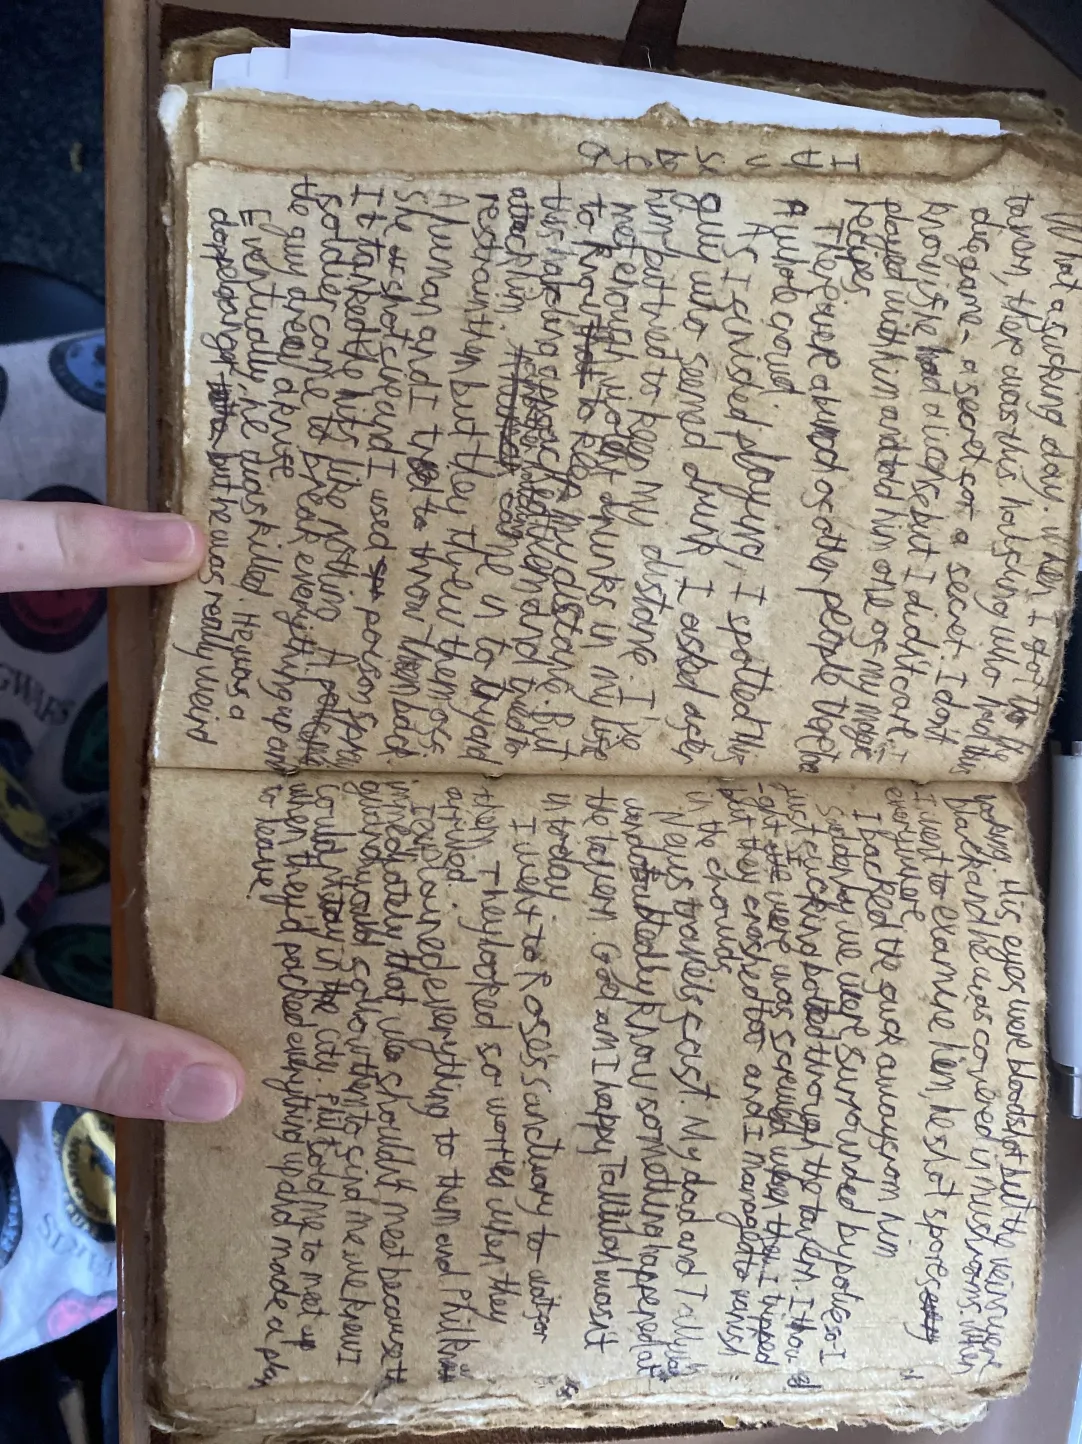 What a fucking day. When I got to the
tavern, there was this halfling who had this
disguise
know if he had a vice
played with him and told him one of my magic
recipes.
There were a bunch of other people there too
A whole crowd.
As I finished playing, I spotted this
guy who seemed drunk, I asked
him
not enough
to know to keep my distance. But
this halfling approached them and tried to
restrain him but they threw them off
A human and I tried to throw them back
She shot fire and I used poison spray
It tanked the hits like nothing. A
soldier come to break everything up and
the guy drew a knife
Eventually, he was killed. He was a
doppelanger but he was really weird
I
looking. His eyes were bloodshot but the veins were
black and he was covered in mushrooms. When
I went to examine him, he shot spores
everywhere
I backed the fuck away from him
Suddenly we were surrounded by police so I
just fucking bolted through the tavern. I thou-
-ght I was screwed when they I tripped
but they crashed too and I managed to vanish
in the crowds
News travels fast. My dad and Tallulah
undoubtedly know something happened at
the tavern. God am I happy Tallulah wasn't
in today
I went to Rose's sanctuary to wait for
them. They looked so worried when they
arrived.
I explained everything to them and Phil
immediately that we shouldn't rest because the
guard would follow them to find me we knew I
couldn't stay in the city. Phil told me to meet up
when they'd packed everything up and made a plan
to leave.